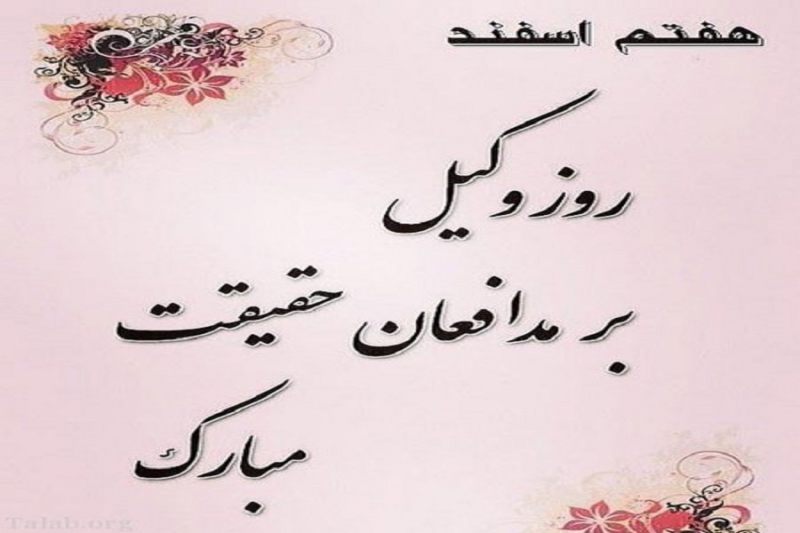 هفتم اسفند
روز وکیل
بر مدافعان حقیقت
مبارک
Talab.org